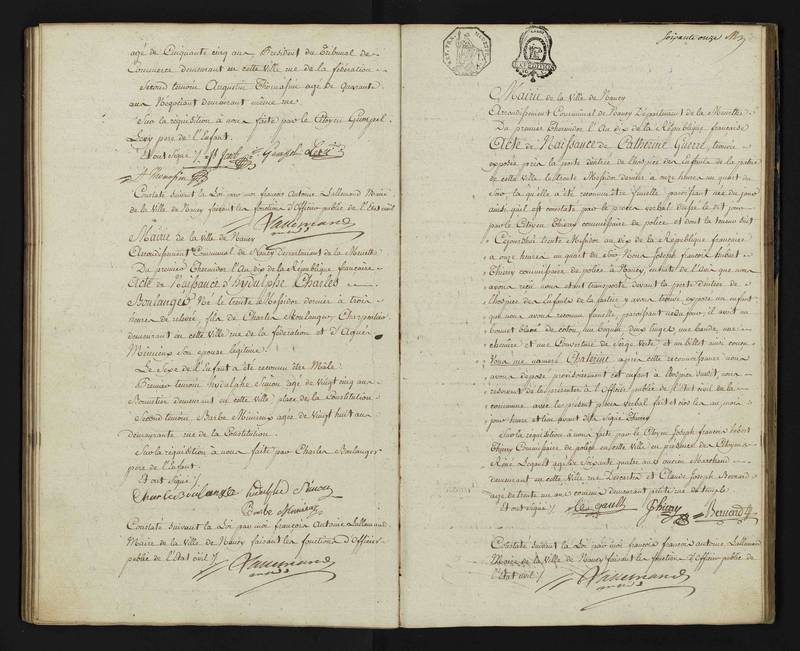 agé de Cinquante cinq ans President du Tribunal de
Commerce demeurant en cette Ville rue de la fédération
Second temoin Augustin Thomassin agé de Quarante
ans Negociant demeurant même rue
Sur la réquisition à nous faite par le Citoyen Gumpel
Levy pere de l'enfant.
Et ont Signé
Constaté suivant la Loi par moi françois Antoine Lallemand Maire
de la Ville de Nancy faisant les fonctions d'Officier public de l'Etat civil
Lallemand
Mairie de la Ville de Nancy
Arrondissement Communal de Nancy departement de la Meurthe
Du premier Thermidor l'An dix de la République française
Acte de Naissance d'hydulphe Charles
Boulanger Né le trente Messidor dernier à trois
heures de relevée, fils de Charles Boulanger Charpentier
demeurant en cette Ville rue de la fédération et d'
son epouse légitime.
Le Sexe de l'enfant a été reconnu être Mâle
Premier temoin hydulphe agé de Vingt cinq ans
demeurant en cette Ville place de la Constitution.
Second temoin Barbe agée de Vingt huit ans
demeurante rue de la Constitution.
Sur la réquisition à nous faite par Charles Boulanger
père de l'enfant.
Et ont Signé
Charles Boulanger hidulphe
Barbe
Constaté suivant la Loi par moi françois Antoine Lallemand
Maire de la Ville de Nancy faisant les fonctions d'Officier
public de l'Etat civil
Lallemand
Soixante onze
Mairie de la Ville de Nancy
Arrondissement Communal de Nancy Département de la Meurthe
Du premier thermidor l'An dix de la République française
Acte de Naissance de Catherine Guerre, trouvée
exposée près la porte d'entrée de l'hospice des Enfants de la patrie
de cette Ville le trente Messidor dernier a onze heures un quart du
Soir, la qu'elle a été reconnue être femelle paroissant née du jour
ainsi qu'il est constaté par le procès verbal dressé le dit jour
par le Citoyen Thiery commissaire de police et dont la teneur suit
Cejourdhui trente Messidor an dix de la République française
a onze heures un quart du Soir Nous Joseph françois hubert
Thiery commissaire de police à Nancy ensuite de l'avis que nous
avons reçu nous etant transporté devant la porte d'entrée de
l'hospice des Enfants de la patrie y avons trouvé exposé un enfant
que nous avons reconnu femelle, paroissant né du jour, il avoit un
bonnet blanc de coton, un beguin deux linges une bande, une
chemise et une Couverture de Serge Verte et un billet ainsi conçu
Vous me nomerés Chaterine après cette reconnoissance nous
avons déposé provisoirement cet enfant à l'hospice susdit, nous
reservant de la présenter à l'Officier public de l'Etat civil de la
commune avec le présent procès verbal fait et clos les an, mois
jour heure et lieu avant dits Signé Thiery
Sur la réquisition à nous faite par le Citoyen Joseph françois hubert
Thiery Commissaire de police en cette Ville en présence des Citoyens
René Legault agé de Soixante quatre ans ancien Marchand
demeurant en cette Ville rue Descartes et Claude Joseph Bernard
agé de trente un ans commis demeurant petite rue du temple
Et ont Signé Le gault Thiery Bernard
Constaté suivant la Loi par moi françois antoine Lallemand
Maire de la Ville de Nancy faisant les fonctions d'Officier public de
l'Etat civil
Lallemand